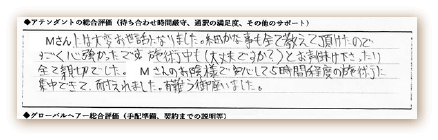 ◆アテンダントの総合評価（待ち合わせ時間厳守、通訳の満足度、その他のサポート）
Mさんには大変お世話になりました。細かな事も全て教えて頂けたので
すごく心強かったです。施術中も（大丈夫ですか？）とお声掛け下さったり
全て親切でした。 Mさんのお陰様で安心して5時間程度の施術に
集中できて、耐えれました。有難う御座いました。
◆グローバルヘアー総合評価（手配準備、契約までの説明等）